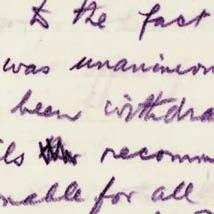 to the fact
was unanimou
been withdra
ils recomm
nable for all